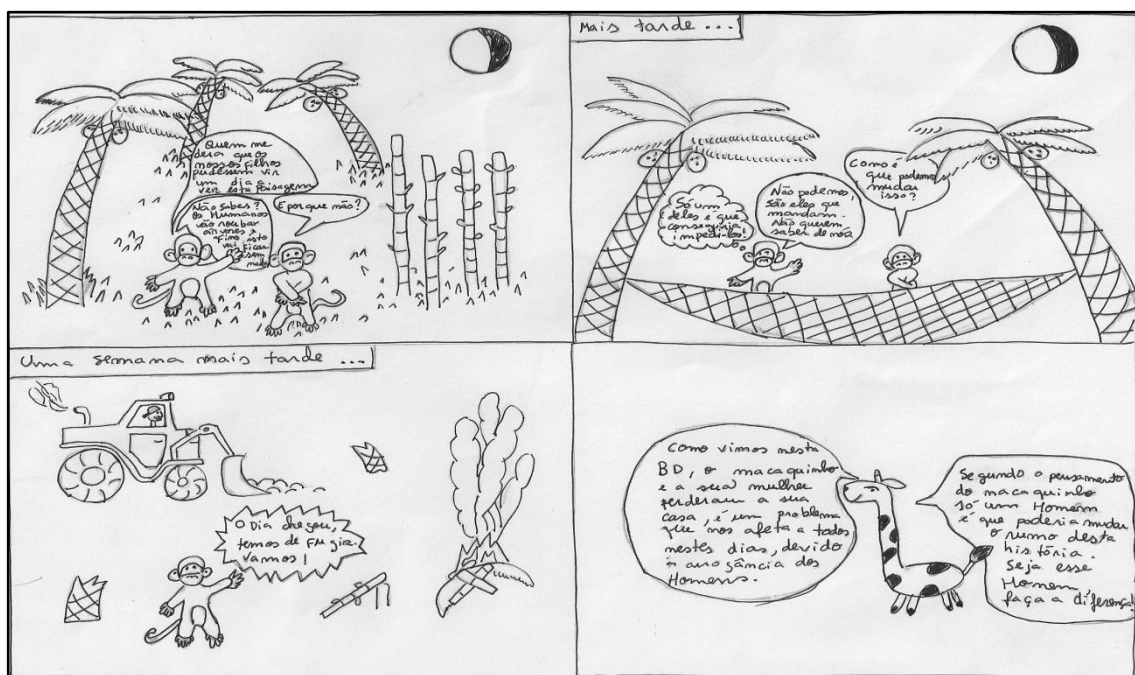 Quem me
dera que os
nossos filhos
pudessem vir
um dia a
ver esta paisagem
E porque não?
Não sabes?
Os Humanos
vão roubar
árvores
isto
vai ficar
sem
nada
Mais tarde ...
Como é
que podemos
mudar
isso?
Não podemos,
são eles que
mandam.
Não querem
saber de nós.
Só um
deles é que
conseguiria
impedi-los!
Uma semana mais tarde ...
O Dia chegou,
temos de fugir.
vamos!
Como vimos nesta
BD, o macaquinho
e a sua mulher
perderam a sua
casa, é um problema
que nos afeta a todos
nestes dias, devido
à arrogância dos
Homens.
Segundo o pensamento
do macaquinho
só um Homem
é que poderia mudar
o rumo desta
história.
Seja esse
Homem
faça a diferença!